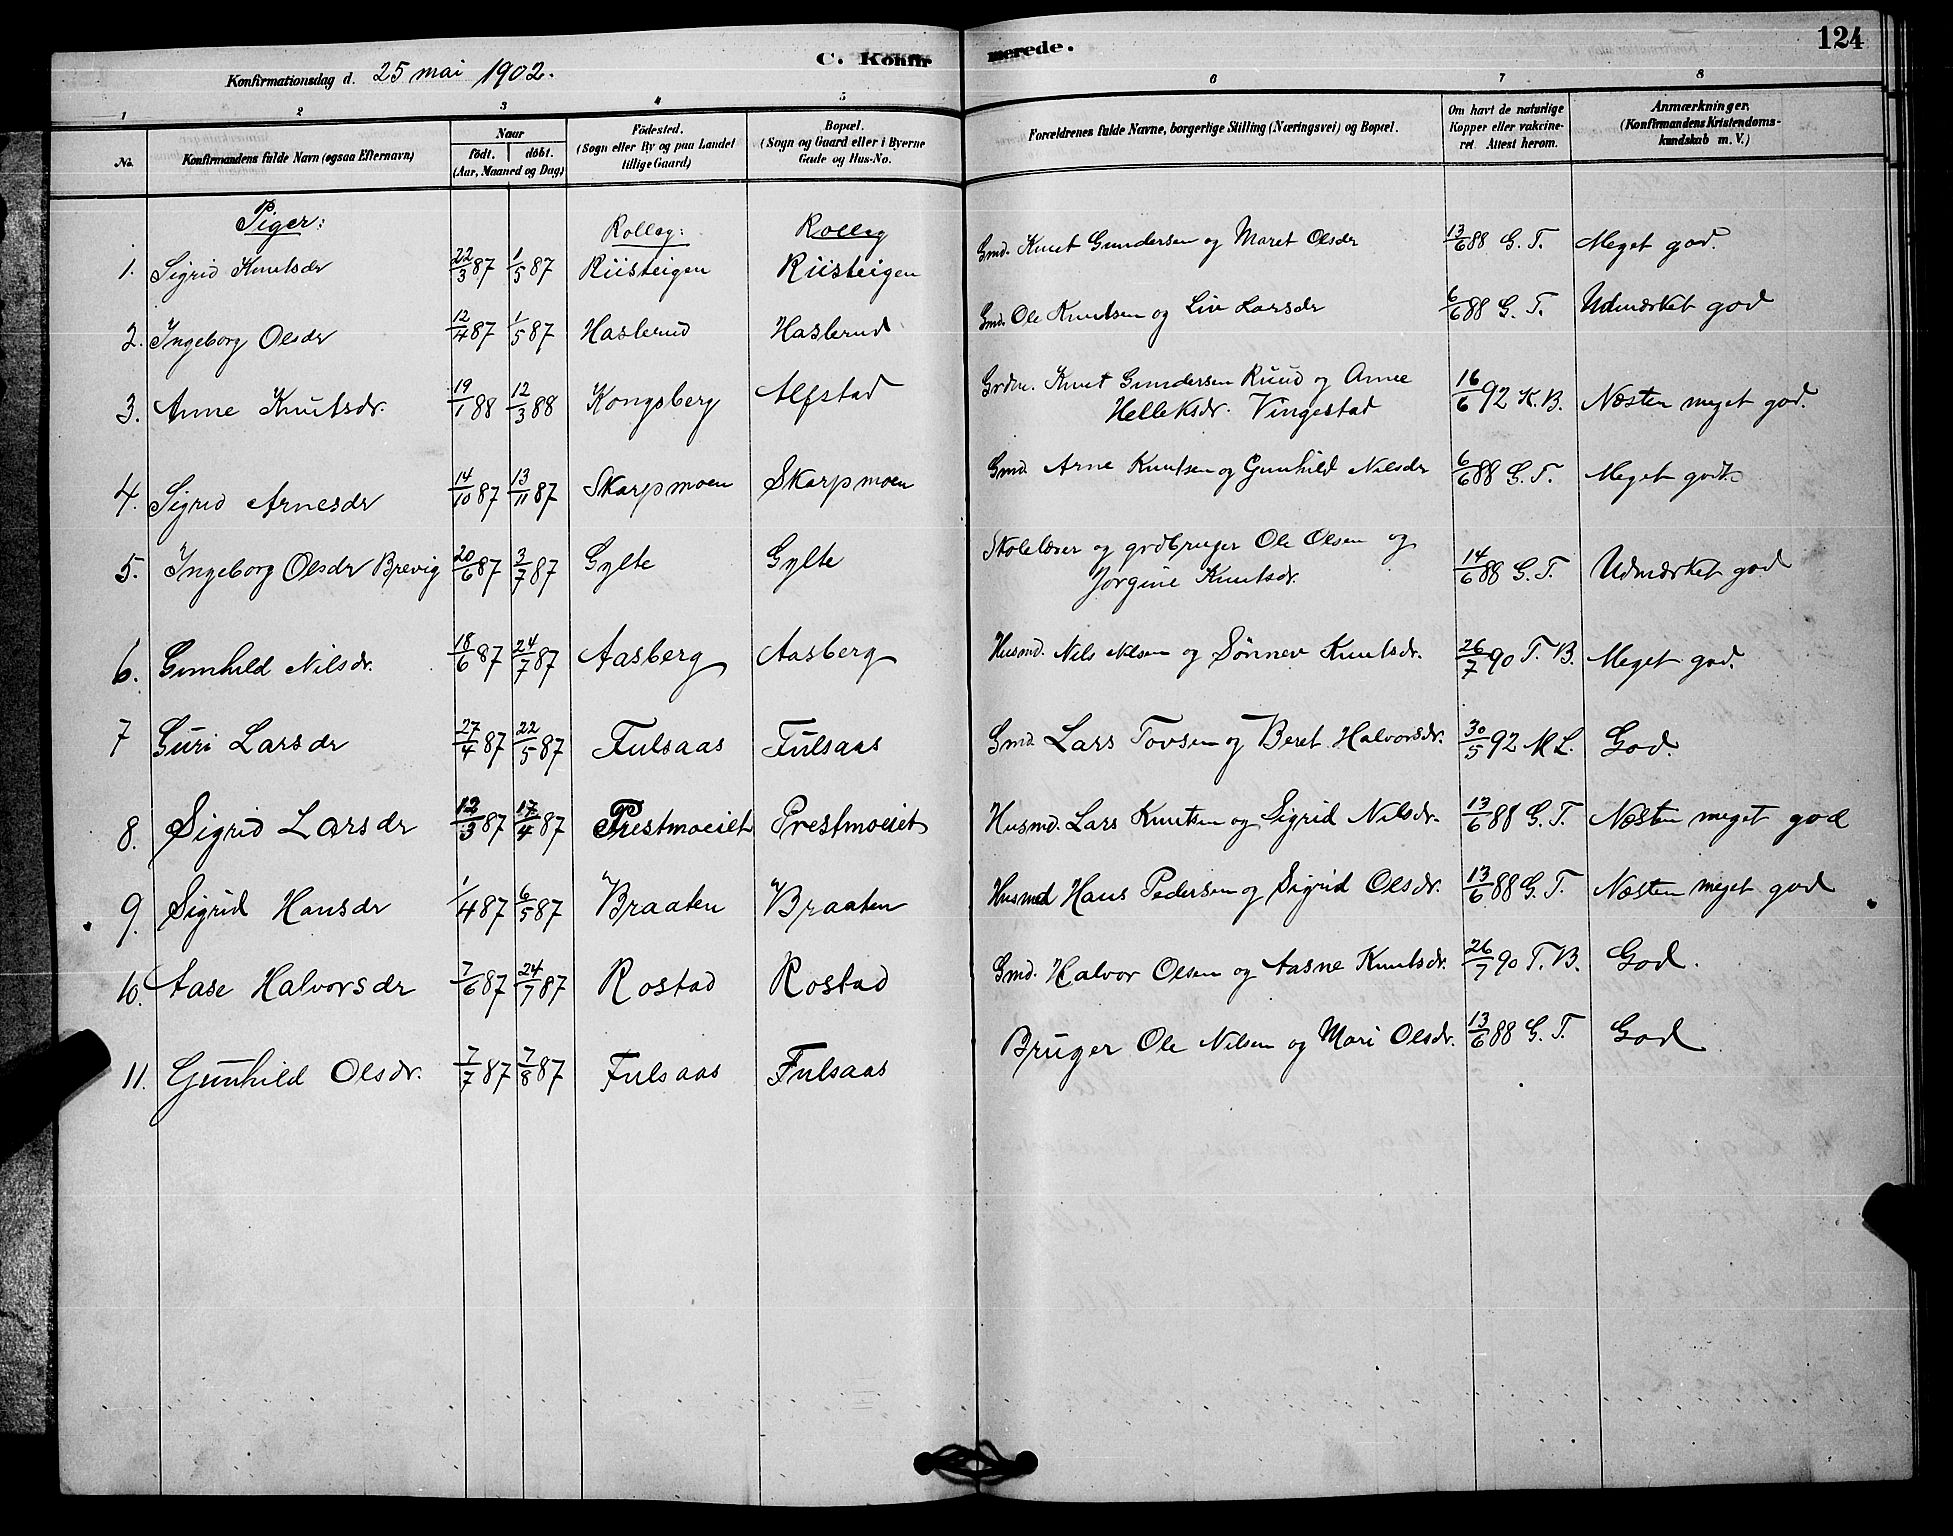 C. Konfirmerede.
124
Konfirmationsdag d. 25 mai 1902.
1 2 3 4 5 6 7 8
No.
Konfirmandens fulde Navn (ogsaa Efternavn)
Naar
födt. döbt.
(Aar, Maaned og Dag)
Födested.
(Sogn eller By og paa Landet
tillige Gaard)
Bopæl.
(Sogn og Gaard eller i Byerne
Gade og Hus-No.
Forældrenes fulde Navne, borgerlige Stilling (Næringsvei) og Bopæl.
Om havt de naturlige
Kopper eller vakcine-
ret. Attest herom.
Anmærkninger.
(Konfirmandens Kristendoms-
kundskab m. V.)
Piger: Rollag: Rollag
1. Sigrid Knutsdr 22/3 87 1/5 87 Riisteigen Riisteigen Gmd. Knut Gundersen og Maret Olsdr 13/6 88 G. T. Meget god.
2. Ingeborg Olsdr 12/4 87 1/5 87 Haslerud Haslerud Gmd. Ole Knutsen og Liv Larsdr 6/6 88 G. T. Udmærket god
3. Anne Knutsdr. 19/1 88 12/3 88 Kongsberg Alfstad Grdm. Knut Gundersen Ruud og Anne
Helleksdr. Vingestad 16/6 92 K. B. Næsten meget god.
4. Sigrid Arnesdr 14/10 87 13/11 87 Skarpmoen Skarpmoen Gmd. Arne Knutsen og Gunhild Nilsdr 6/6 88 G. T. Meget godt.
5. Ingeborg Olsdr Brevig 20/6 87 3/7 87 Gylte Gylte Skolelærer og grdbruger Ole Olsen og
Jorgine Knutsdr. 14/6 88 G. T. Udmærket god
6. Gunhild Nilsdr. 18/6 87 24/7 87 Aasberg Aasberg Husmd. Nils Nilsen og Sønnev Knutsdr. 26/7 90 T. B. Meget god.
7 Guri Larsdr 27/4 87 22/5 87 Fulsaas Fulsaas Gmd. Lars Tovsen og Beret Halvorsdr. 30/5 92 M L. God.
8. Sigrid Larsdr 12/3 87 17/4 87 Prestmoeiet Prestmoeiet Husmd. Lars Knutsen og Sigrid Nilsdr. 13/6 88 G. T. Næsten meget god
9. Sigrid Hansdr 1/4 87 6/5 87 Braaten Braaten Husmd Hans Pedersen og Sigrid Olsdr. 13/6 88 G. T. Næsten meget god
10. Aase Halvorsdr 7/6 87 24/7 87 Rostad Rostad Gmd. Halvor Olsen og Aasne Knutsdr. 26/7 90 T. B. God.
11. Gunhild Olsdr. 7/7 87 7/8 87 Fulsaas Fulsaas Bruger Ole Nilsen og Mari Olsdr. 13/6 88 G. T. God